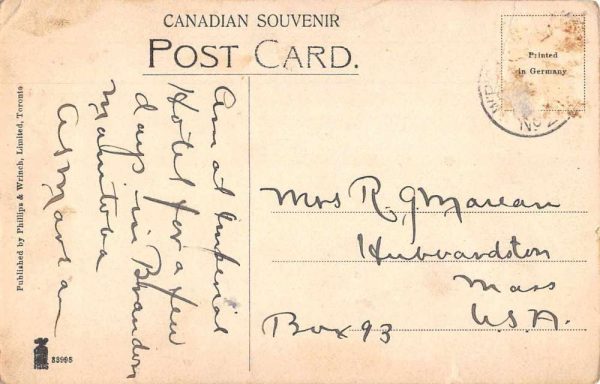 CANADIAN SOUVENIR
POST CARD.
Printed
in Germany
Published by Phillips & Wrinch, Limited, Toronto
Am at Imperial
Hotel for a few
days in Brandon
Manitoba
Mrs R. G. Marean
Hubbardston
Mass
U.S.A.
Box 93
53995